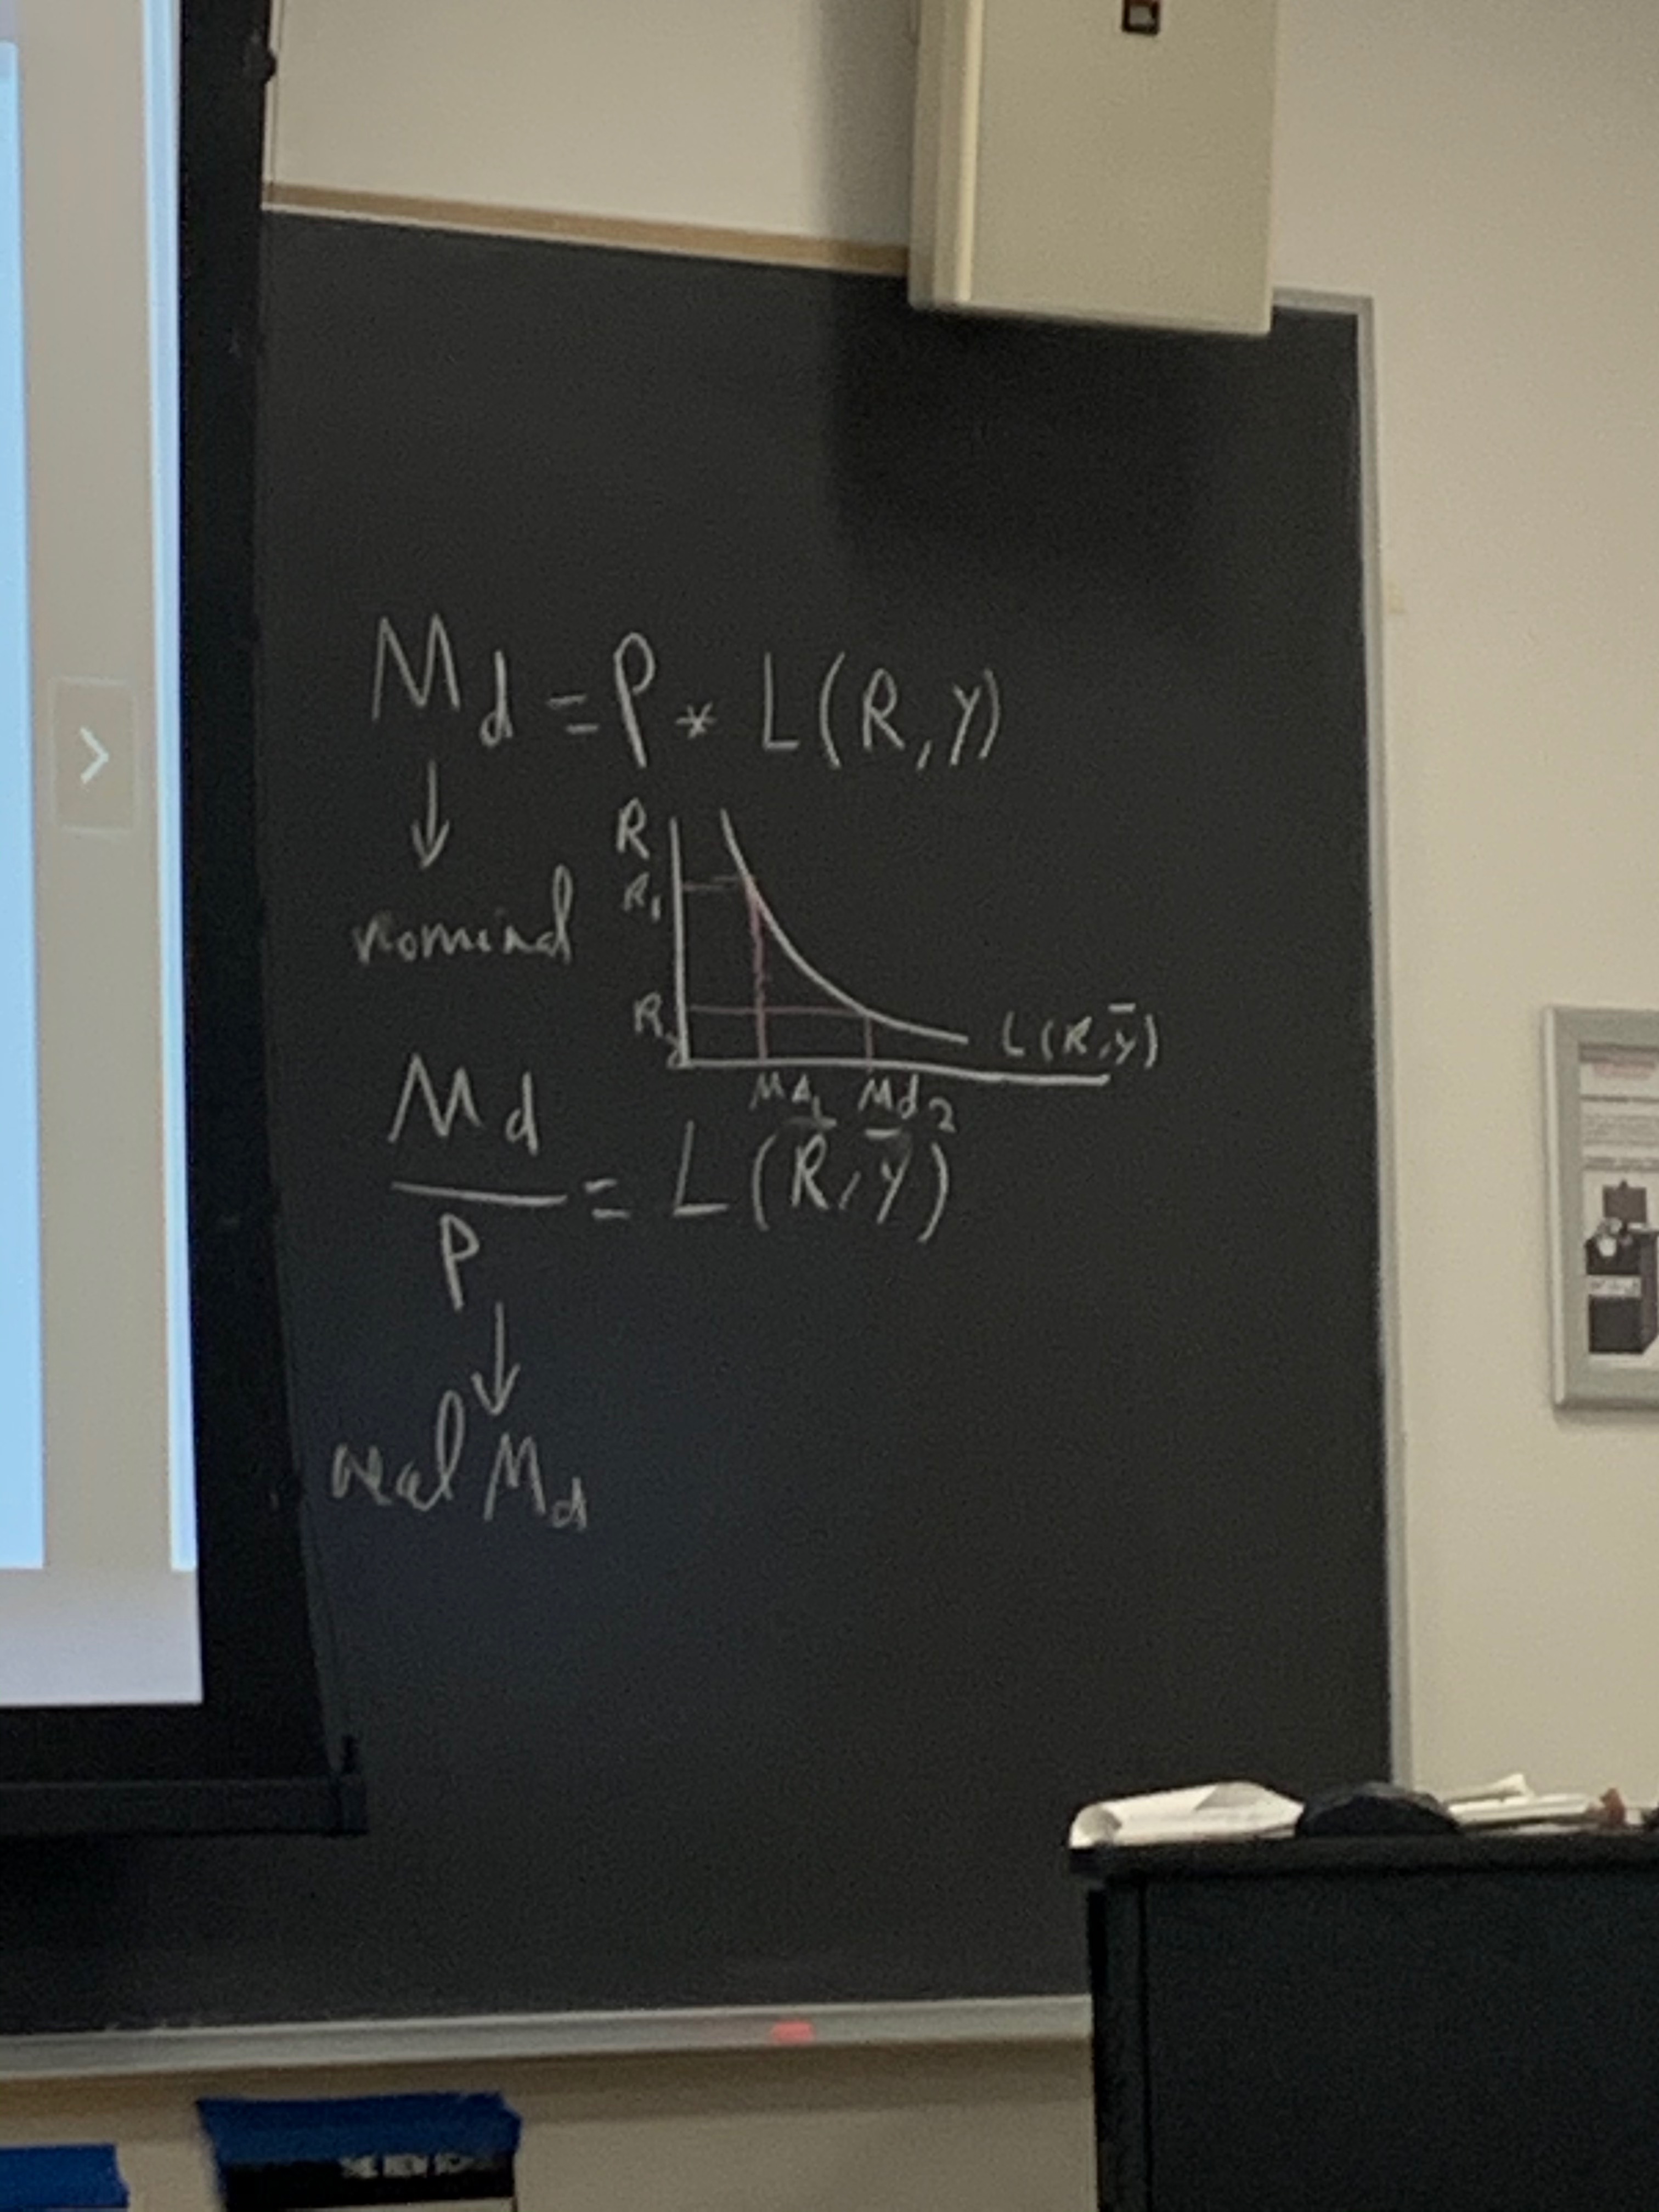 M d = P * L(R,Y)
nominal
R
R1
R2
L(R,Y̅)
Md1 Md2
Md
P
= L(R̅,Y̅)
real Md
THE NEW SCHOOL